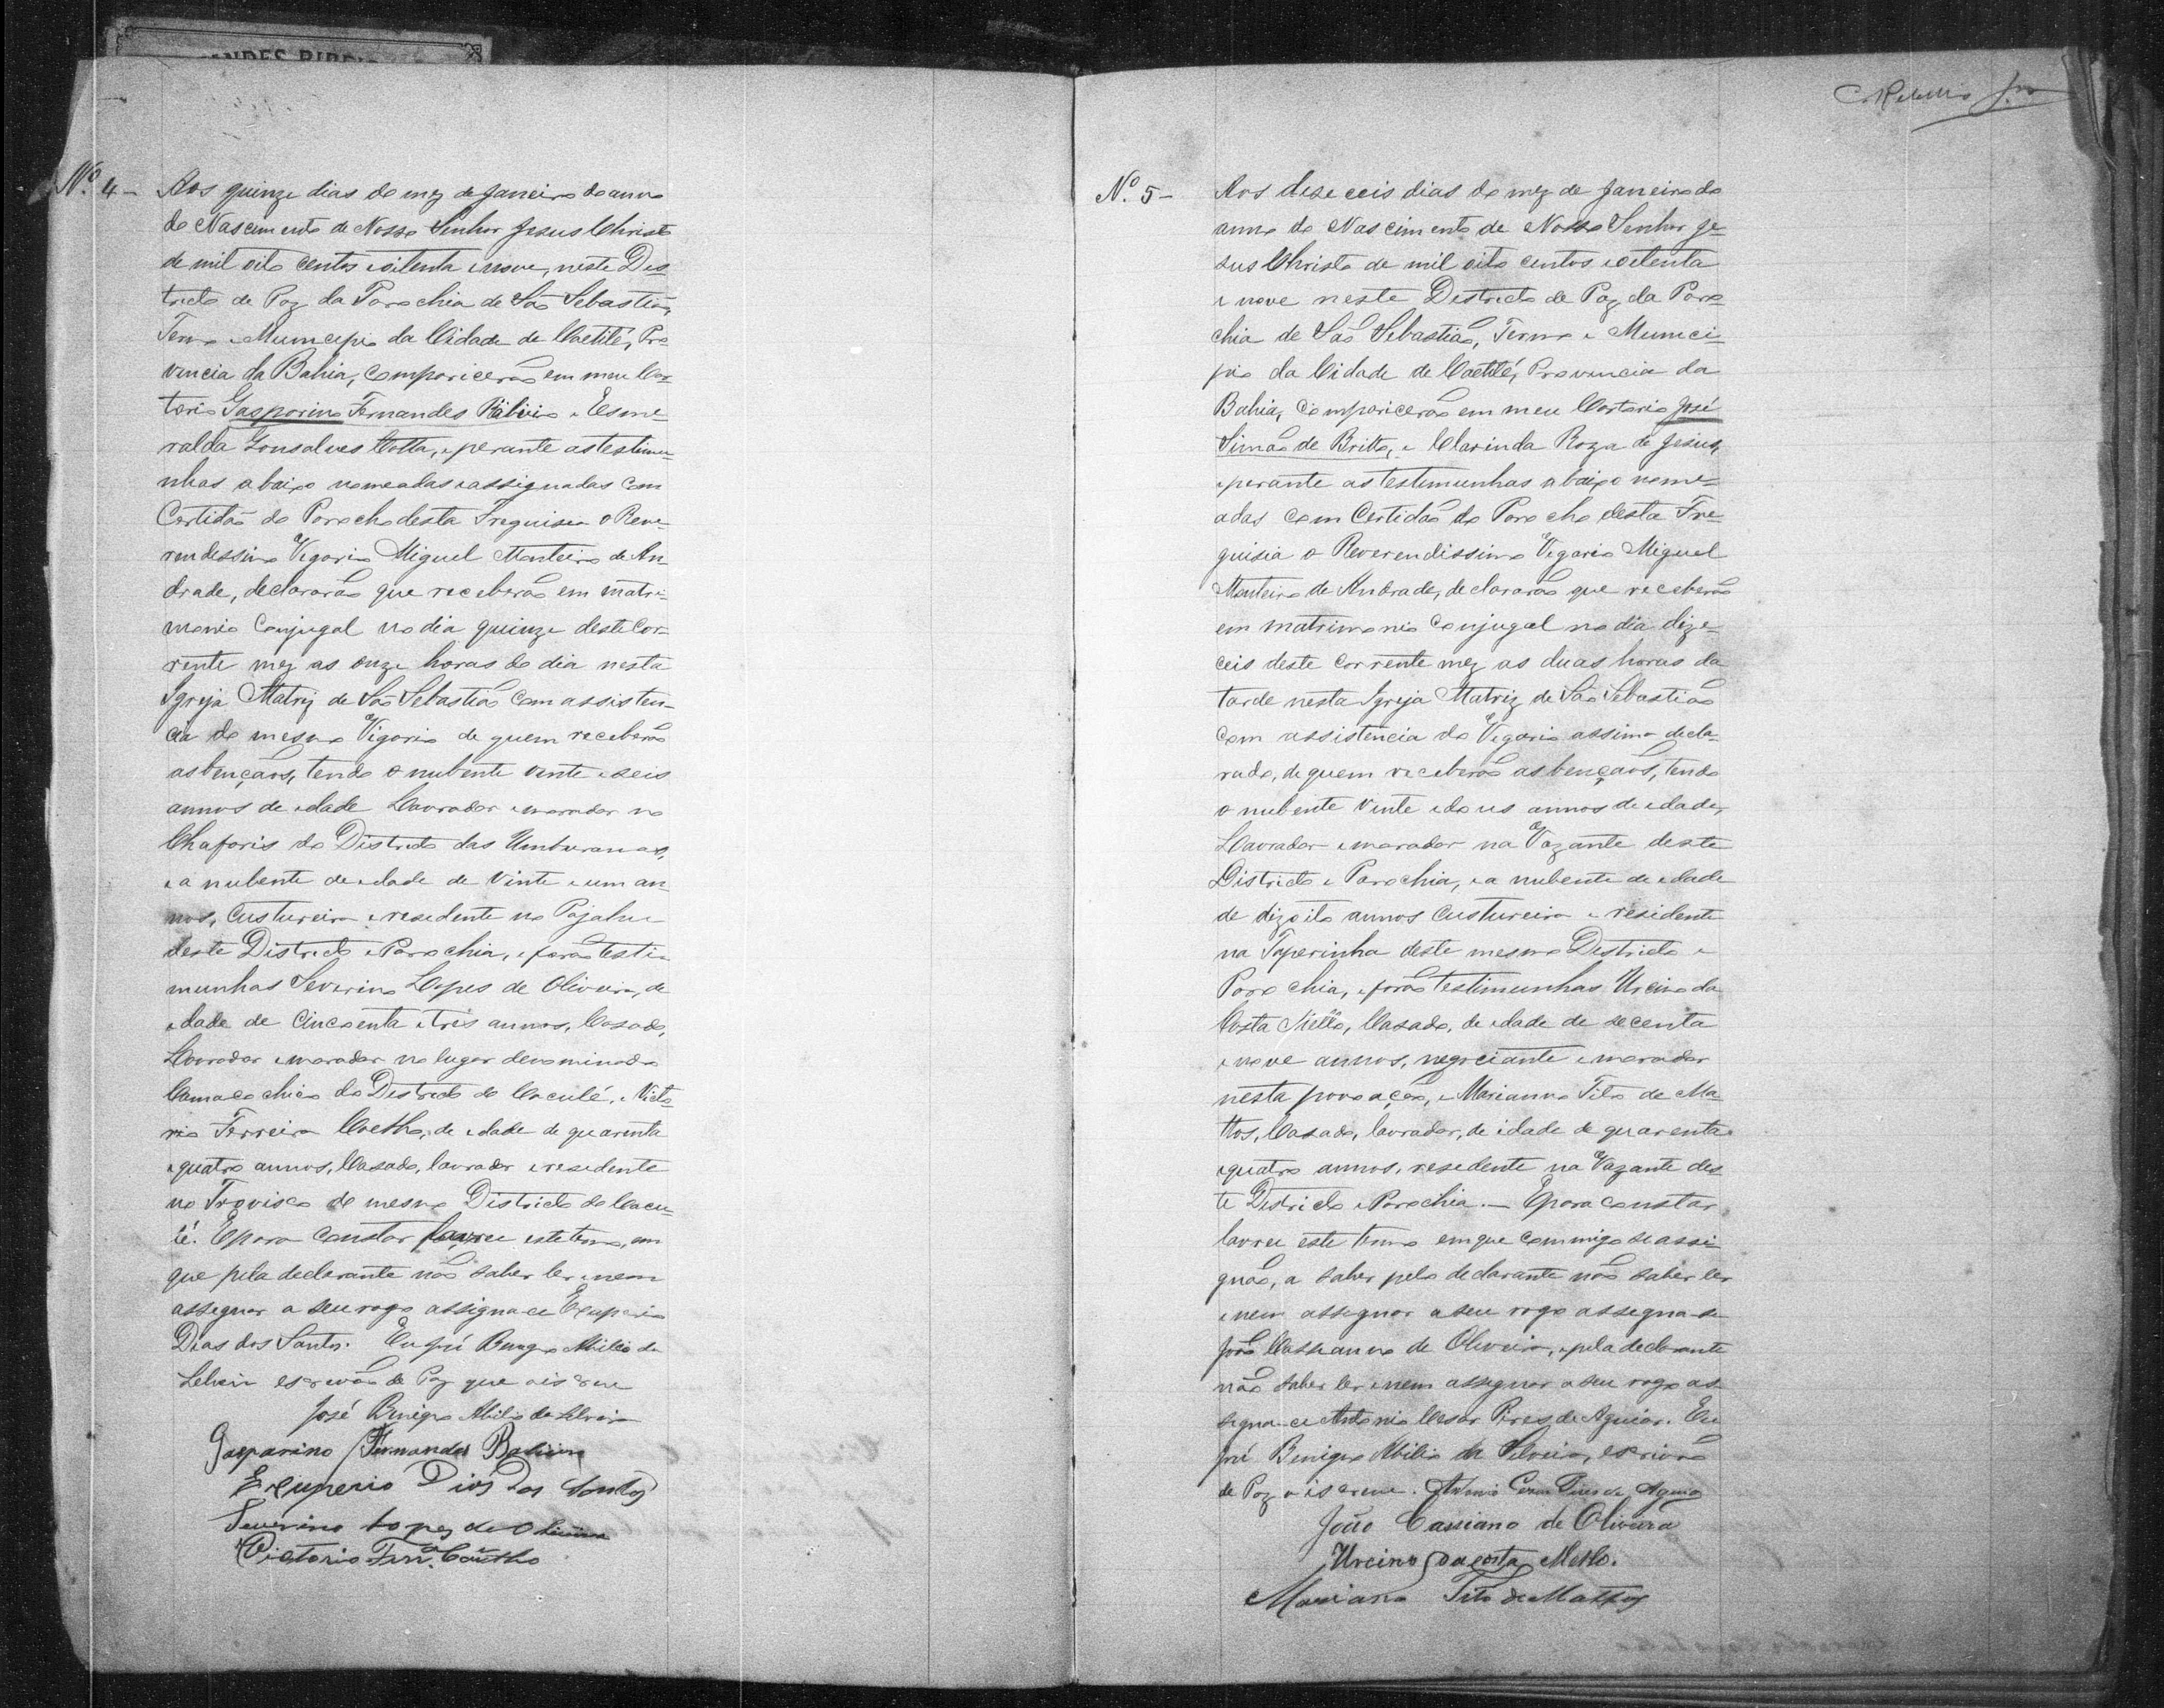 C. Rebello Jr.
Nº 4 –
Aos quinze dias do mez de Janeiro do anno
do Nascimento de Nosso Senhor Jesus Christo
de mil oito centos e oitenta e nove, neste Des-
tricto de Paz da Parochia de São Sebastião,
Termo e Municipio da Cidade de Caetité, Pro-
vincia da Bahia, comparicerão em meu Car-
torio Gasparino Fernandes e Esme-
ralda Gonsalves Cotta, e perante as testimu-
nhas abaixo nomeadas e assignadas com
Certidão do Parocho desta Freguisia o Reve-
rendissimo Vigario Miguel Monteiro de An-
drade, declararão que receberão em matri-
monio Conjugal no dia quinze deste Cor-
rente mez as onze horas do dia nesta
Igreja Matriz de São Sebastião com assisten-
cia do mesmo Vigario de quem receberão
as bençaõs, tendo o nubente vinte e seis
annos de edade Lavrador e morador no
Chaforis do Districto das Umburanas,
e a nubente de edade de vinte e um an-
nos, custureira e residente no Pajahu
deste Districto e Parochia, e forão testi-
munhas Severino Lopes de Oliveira, de
edade de cincoenta e tres annos, Casado,
Lavrador e morador no lugar denominado
do Destricto do Caculé, e Victo-
rio Ferreira Coelho, de edade de quarenta
e quatro annos, Casado, lavrador e residente
no Trovisco do mesmo Districto do Cacu-
lé. E para constar lavrei este termo, em
que pela declarante não saber ler e nem
assegnar a seu rogo assigna-ce Exuperio
Dias dos Santos. Eu José Benigno Abilio da
Silveira escrivão de Paz que o iscrevi
José Benigno Abilio da Silveira
Gasparino Fernandes
Exuperio Dias Dos Santos
Severino Lopes de Oliveira
Victorio Ferrª. Coelho
Nº. 5 –
Aos deze ceis dias do mez de Janeiro do
anno do Nascimento de Nosso Senhor Je-
sus Christo de mil oito centos e oitenta
e nove neste Districto de Paz da Paro-
chia de São Sebastião, Termo e Munici-
pio da Cidade de Caetité, Provincia da
Bahia, comparicerão em meu Cartorio José
Simão de Britto, e Clarinda Roza de Jesus,
e perante as testimunhas abaixo nome-
adas com Certidão do Parocho desta Fre-
guisia o Reverendissimo Vegario Miguel
Monteiro de Andrade, declararão que receberão
em matrimonio Conjugal no dia dize-
ceis deste corrente mez as duas horas da
tarde nesta Igreja Matriz de São Sebastião
com assistencia do Vegario assima decla-
rado, de quem receberão as bençaõs, tendo
o nubente vinte e dous annos de edade,
Lavrador e morador na Vazante deste
Districto e Parochia, e a nubente de edade
de dizoito annos custureira e residente
na Taperinha deste mesmo Districto e
Parochia, e forão testimunhas Urcino da
Costa Mello, Casado, de edade de secenta
e nove annos, negociante e morador
nesta povoação, e Marianno Tito de Ma-
ttos, Casado, lavrador, de idade de quarenta
e quatro annos, resedente na Vazante des
te Districto e Parochia. – E para constar
lavrei este termo em que commigo se assi-
gnão, a saber pelo declarante não saber ler
e nem assegnar a seu rogo assegna-se
João Cassianno de Oliveira, e pela declarante
não saber ler e nem assegnar a seu rogo as-
segna-ce Antonio Cesar Pires de Aguiar. Eu
José Benigno Abilio da Silveira, escrivão
de Paz o iscrevi. Antonio Cesar Pires de Aguiar
João Cassiano de Oliveira
Urcino da Costa Mello.
Mariano Tito de Mattos